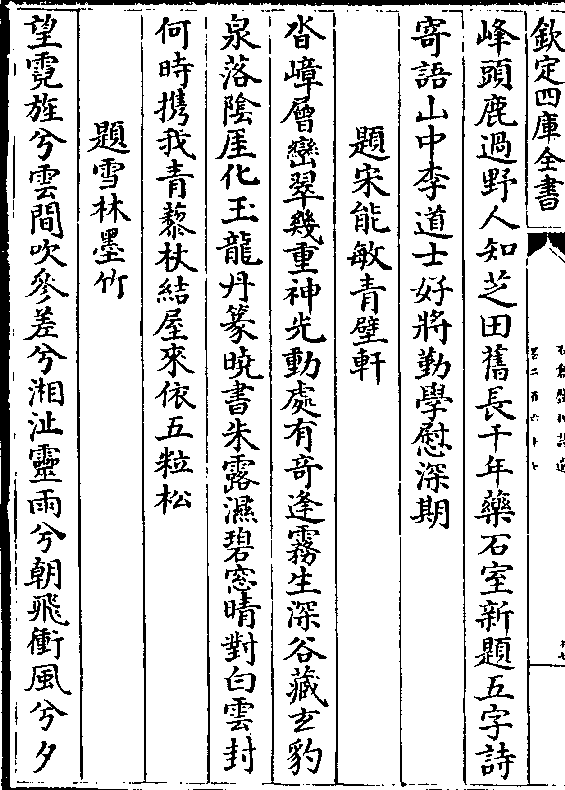 欽定四庫全書
峰頭鹿過野人知芝田舊長千年藥石室新題五字詩
寄語山中李道士好將勤學慰深期
題宋能敏青壁軒
沓嶂層巒翠幾重神光動處有奇逢霧生深谷藏玄豹
泉落陰厓化玉龍丹篆曉書朱露濕碧窓晴對白雲封
何時携我青藜杖結屋來依五粒松
題雪林墨竹
望霓旌兮雲間吹參差兮湘沚靈雨兮朝飛衝風兮夕